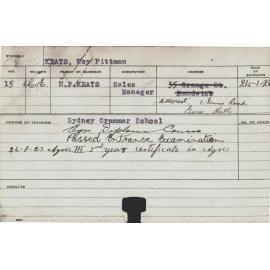 STUDENT
KEATS, Roy Pittman
AGE RELIGION PARENT OR GUARDIAN OCCUPATION ADDRESS DATE OF ENTRANCE
15 C.E. H.P.KEATS Sales Manager 35 Grange St. Randwick 24-1-2
Road
Gore Hill
COURSE OF TRAINING Sydney Grammar School
Agr. Diploma Course
Passed Entrance Examination
26-1-23 Agric III 3rd year certificate in Agric
RESULTS